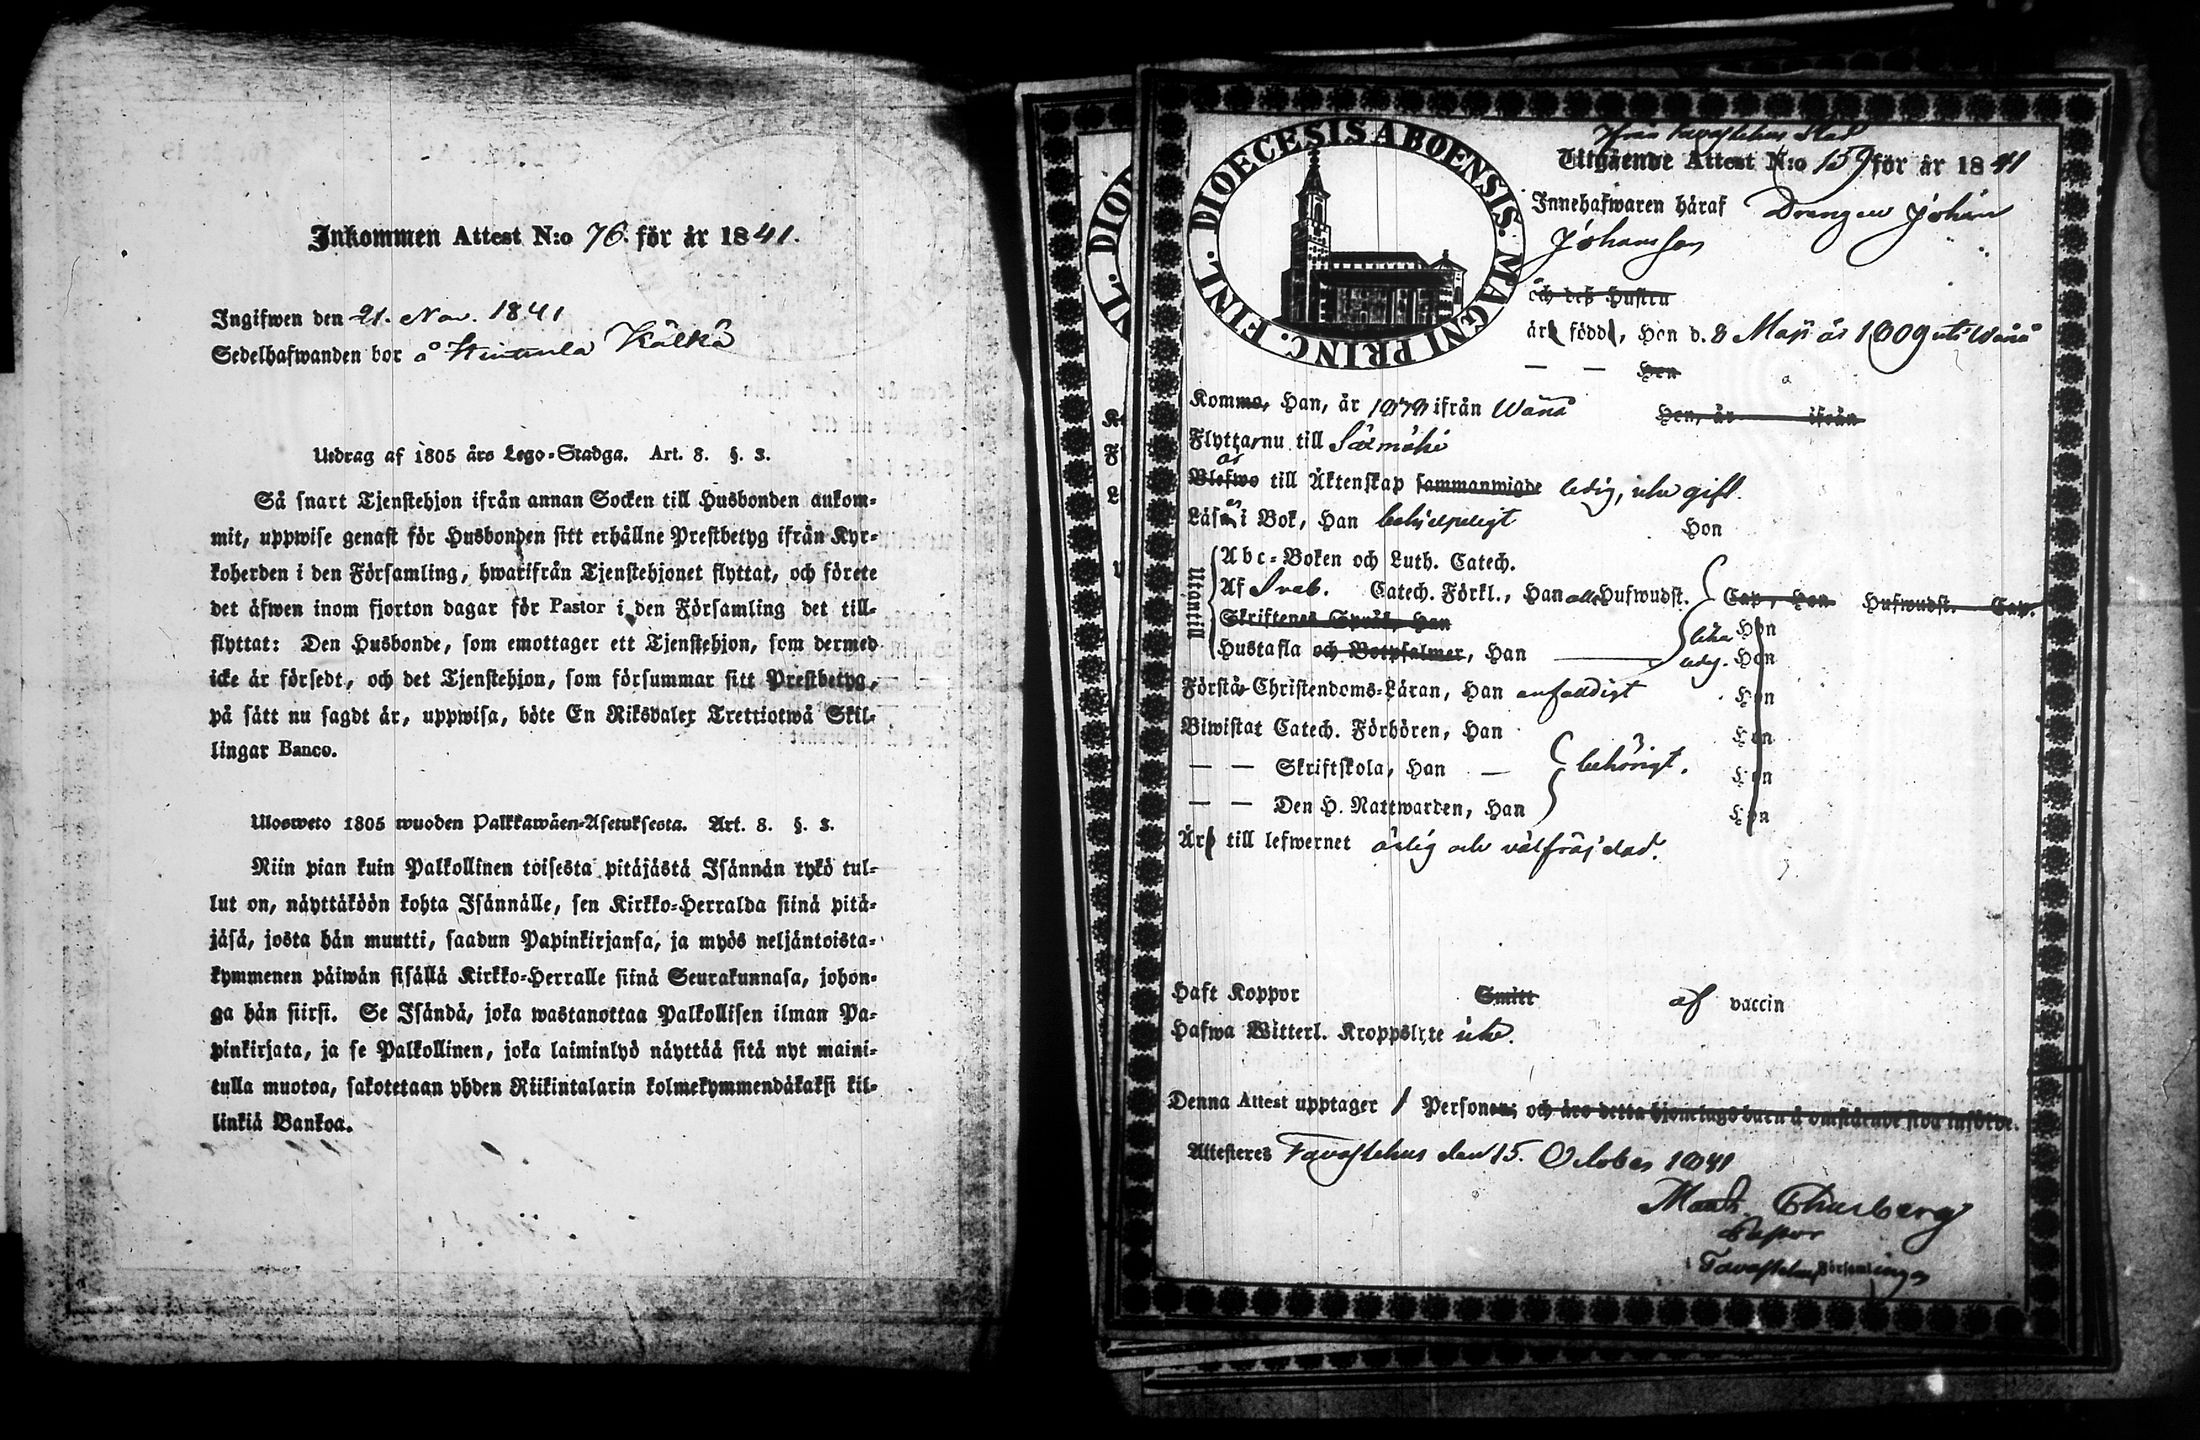 Inkommen Attest N:o 76. för år 1841.
Ingifwen den 21. Nov. 1841
Sedelhafwanden bor å Hintula Källkä
Utdrag af 1805 års Lego-Stadga. Art. 8. §. 3.
Så snart Tjenstehjon ifrån annan Socken till Husbonden ankom-
mit, uppwise genast för Husbonden sitt erhållne Prestbetyg ifrån Kyr-
koherden i den Församling, hwarifrån Tjenstehjonet flyttat, och förete
det äfwen inom fjorton dagar för Pastor i den Församling det till-
flyttat: Den Husbonde, som emottager ett Tjenstehjon, som dermed
icke är försedt, och det Tjenstehjon, som försummar sitt Prestbetyg,
på sätt nu sagdt är, uppwisa, böte En Riksdaler Trettiotwå Skil-
lingar Banco.
Ulosweto 1805 wuoden Palkkawäen-Asetuksesta. Art. 8. §. 3.
Niin pian kuin Palkollinen toisesta pitäjästä Isännän tykö tul-
lut on, näyttäköön kohta Isännälle, sen Kirkko-Herralda siinä pitä-
jäsä, josta hän muutti, saadun Papinkirjansa, ja myös neljäntoista-
kymmenen päiwän sisällä Kirkko-Herralle siinä Seurakunnasa, johon-
ga hän siirsi. Se Isändä, joka wastanottaa Palkollisen ilman Pa-
pinkirjata, ja se Palkollinen, joka laiminlyö näyttää sitä nyt maini-
tulla muotoa, sakotetaan yhden Riikintalarin kolmekymmendäkaksi kil-
linkiä Bankoa.
FINL. DIOECESIS ABOENSIS. MAGNI PRINC.
ifrån Tavastehus Stad
Utgående Attest N:o 159 för år 1841
Innehafwaren häraf Drengen Johan
Johansson
och des Hustru
är född, Han d. 8 Maji år 1809 uti Wånå
— — Hon
Komme, Han, år 1838 ifrån Wånå Hon, år ifrån
Flyttar nu till Säämäki
är
Blefwo till Äktenskap sammanwigde ledig, icke gift.
Läser i Bok, Han behjelpeligt Hon
Utantill
Abc-Boken och Luth. Catech.
Af Sveb. Catech. Förkl., Han alla Hufwudst. Cap., Hon Hufwudst. Cap.
Skriftenes Språk, Han Hon
Hustafla och Botpsalmer, Han Hon
Förstår Christendoms-Läran, Han enfaldigt Hon
Biwistat Catech. Förhören, Han Hon
— — Skriftskola, Han — behörigt. Hon
— — Den H. Nattwarden, Han Hon
Är till lefwernet ärlig och välfräjdad.
Haft Koppor Smitt af vaccin
Hafwa Witterl. Kroppslyte icke.
Denna Attest upptager 1 Personer; och äro detta hjonelags barn å omstående sida införde.
Attesteres Tavastehus den 15. October 1841
Pastor
Tavastehus Församlingar